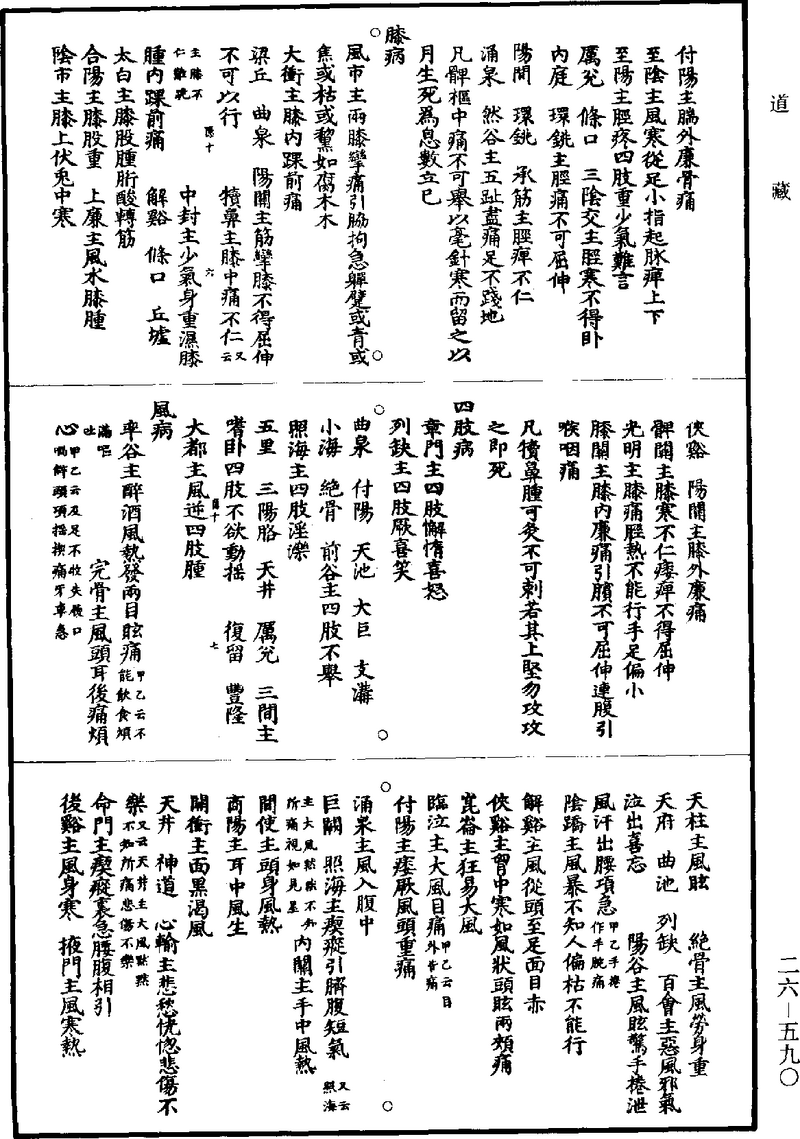 道藏
二六—五九〇
付陽主膈外廉骨痛
至陰主風寒從足小指起脉痺上下
至陽主脛疼四肢重少氣難言
厲兌　條口　三陰交主脛寒不得卧
內庭　環銚主脛痛不可屈伸
陽間　環銚　承筋主脛痺不仁
涌泉　然谷主五趾盡痛足不踐地
凡髀樞中痛不可舉以毫針寒而留之以
月生死爲息數立已
膝病
風市主兩膝攣痛引脇拘急嚲躄或青或
焦或枯或黧如腐木木
大衝主膝內踝前痛
梁丘　曲泉　陽關主筋攣膝不得屈伸
不可以行　犢鼻主膝中痛不仁又云
主膝不仁難跪　中封主少氣身重濕膝
腫內踝前痛　解谿　條口　丘墟
太白主膝股腫胻酸轉筋
合陽主膝股重　上廉主風水膝腫
陰市主膝上伏兎中寒
俠谿　陽關主膝外廉痛
髀關主膝寒不仁痿痺不得屈伸
光明主膝痛脛熱不能行手足偏小
膝關主膝內廉痛引臏不可屈伸連腹引
喉咽痛
凡犢鼻腫可灸不可刺若其上堅勿攻攻
之即死
四肢病
章門主四肢懈惰喜怒
列缺主四肢厥喜笑
曲泉　付陽　天池　大巨　支溝
小海　絶骨　前谷主四肢不舉
照海主四肢淫濼
五里　三陽胳　天井　厲兌　三間主
嗜卧四肢不欲動摇　復留　豐隆
大都主風逆四肢腫
風病
率谷主醉酒風熱發兩目眩痛甲乙云不能飲食煩
滿嘔吐　完骨主風頭耳後痛煩
心甲乙云及足不收失履口喎僻頭項摇瘈痛牙車急
天柱主風眩　絶骨主風勞身重
天府　曲池　列缺　百會主惡風邪氣
泣出喜忘　陽谷主風眩驚手捲泄
風汗出腰項急甲乙手捲作手腕痛
陰蹻主風暴不知人偏枯不能行
解谿主風從頭至足面目赤
俠谿主胷中寒如風狀頭眩兩頰痛
崑崙主狂易大風
臨泣主大風目痛甲乙云目外眥痛
付陽主痿厥風頭重痛
涌泉主風入腹中
巨闕　照海主瘈瘲引臍腹短氣又云照海
主大風默默不知所痛視如見星　內關主手中風熱
間使主頭身風熱
商陽主耳中風生
關衝主面黑渴風
天井　神道　心輸主悲愁恍惚悲傷不
樂又云天井主大風默然不知所痛悲傷不樂
命門主瘈瘲裏急腰腹相引
後谿主風身寒　掖門主風寒熱